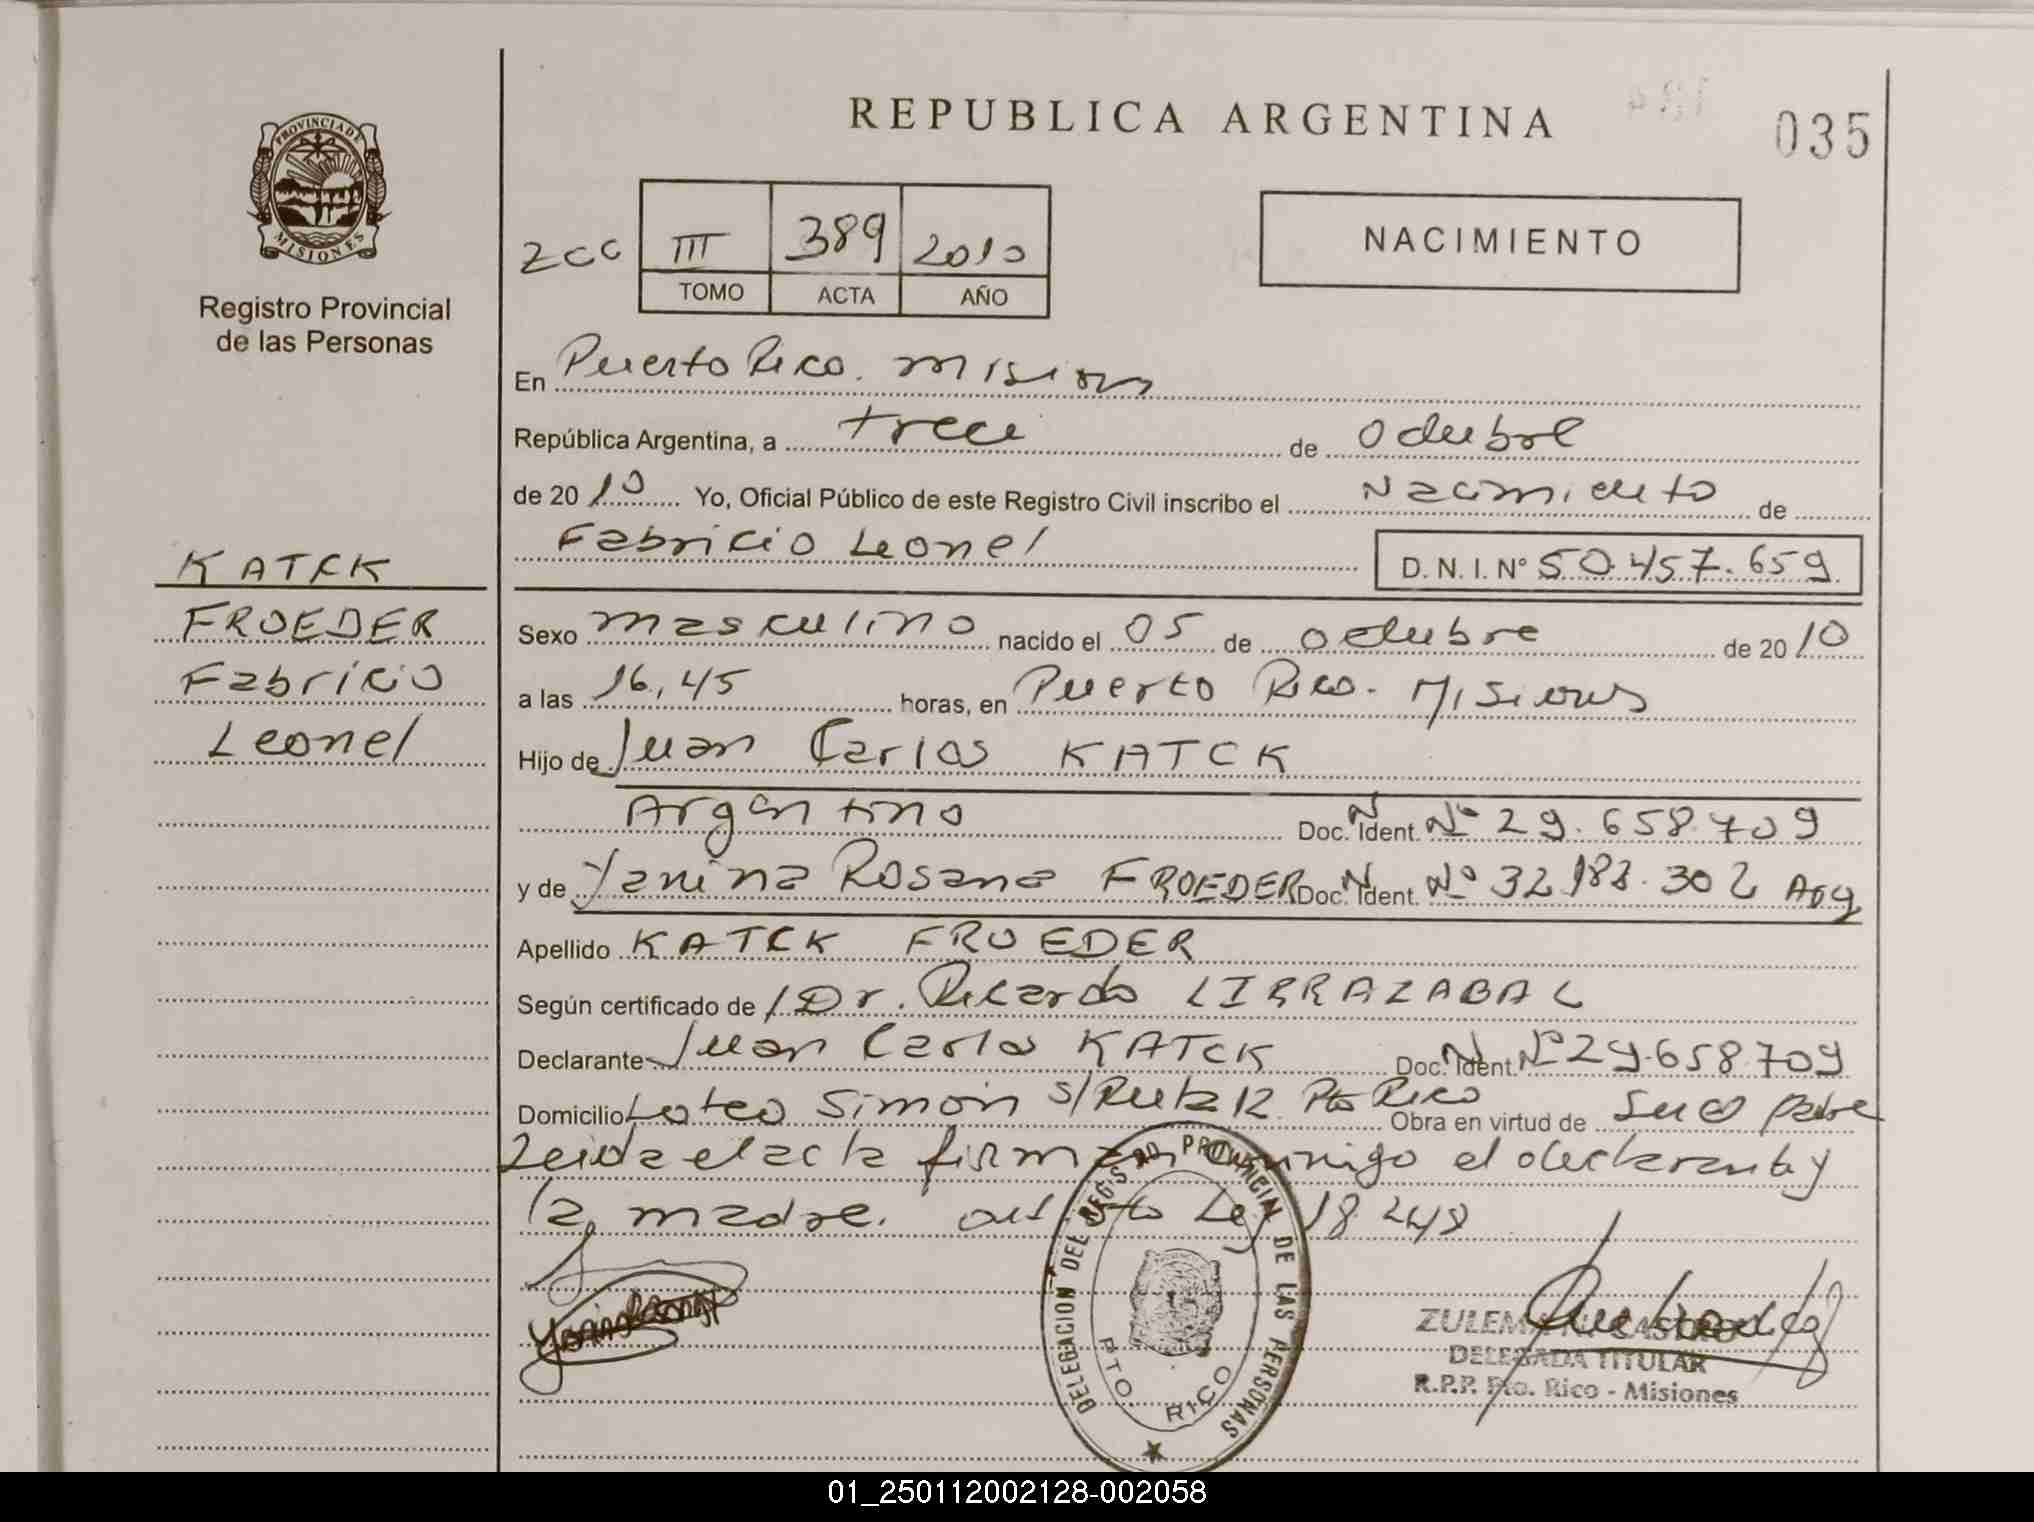 REPUBLICA ARGENTINA
035
PROVINCIA DE
MISIONES
Registro Provincial
de las Personas
zcc III 389 2010
TOMO ACTA AÑO
NACIMIENTO
En Puerto Rico. Misiones
República Argentina, a trece de octubre
de 2010 Yo, Oficial Público de este Registro Civil inscribo el Nacimiento de
Fabricio Leonel D. N. I. N° 50.457.659
KATCK
FROEDER
Fabricio
Leonel
Sexo masculino nacido el 05 de octubre de 2010
a las 16,45 horas, en Puerto Rico. Misiones
Hijo de Juan Carlos KATCK
Argentino Doc. N. Ident. N° 29.658.709
y de Yanina Rosana FROEDER Doc. N. Ident. N° 32.183.302 Arg
Apellido KATCK FROEDER
Según certificado de / Dr. Ricardo LIRRAZABAL
Declarante Juan Carlos KATCK Doc. N. Ident. N° 29.658.709
Domicilio Loteo Simón s/Ruta 12 Pto Rico Obra en virtud de su padre
Leida el acta firman conmigo el declarante y
la madre. Ley 18248
DELEGACION DEL REGISTRO PROVINCIAL DE LAS PERSONAS
PTO. RICO
ZULEMA
DELEGADA TITULAR
R.P.P. Pto. Rico - Misiones
01_250112002128-002058